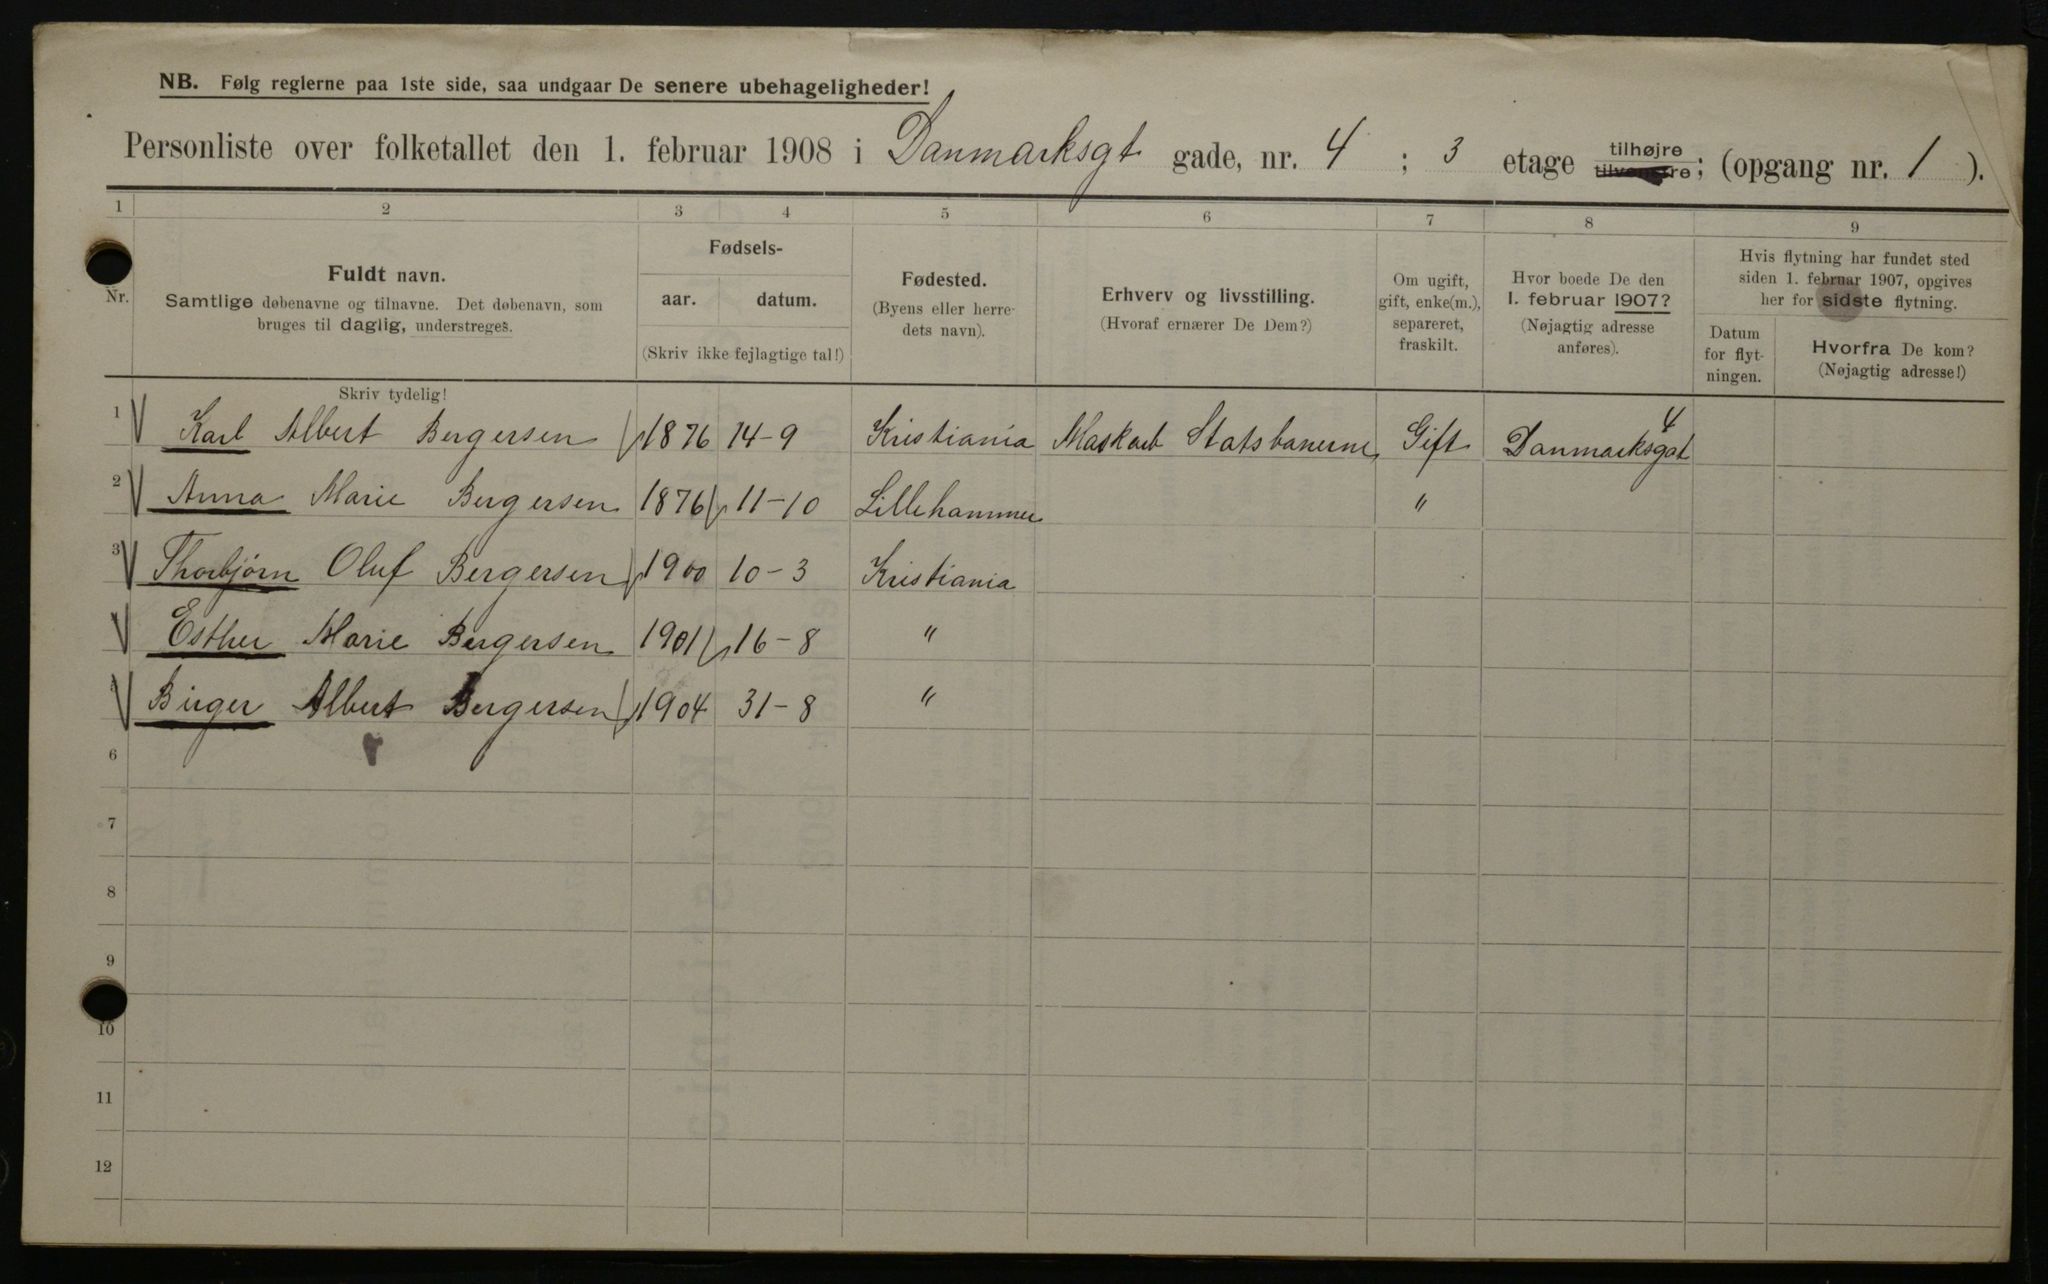 NB. Følg reglerne paa 1ste side, saa undgaar De senere ubehageligheder!
Personliste over folketallet den 1. februar 1908 i Danmarksgt gade, nr. 4 ; 3 etage tilhøjre tilvenstre; (opgang nr. 1 ).
1 2 3 4 5 6 7 8 9
Nr.
Fuldt navn.
Samtlige døbenavne og tilnavne. Det døbenavn, som
bruges til daglig, understreges.
Fødsels-
aar. datum.
(Skriv ikke fejlagtige tal!)
Fødested.
(Byens eller herre-
dets navn).
Erhverv og livsstilling.
(Hvoraf ernærer De Dem?)
Om ugift,
gift, enke(m.),
separeret,
fraskilt.
Hvor boede De den
1. februar 1907?
(Nøjagtig adresse
anføres).
Hvis flytning har fundet sted
siden 1. februar 1907, opgives
her for sidste flytning.
Datum
for flyt-
ningen.
Hvorfra De kom?
(Nøjagtig adresse!)
Skriv tydelig!
1 Karl Albert Bergersen 1876 14-9 Kristiania Maskarb Statsbanerne Gift Danmarksgat 4
2 Anna Marie Bergersen 1876 11-10 Lillehammer "
3 Thorbjørn Oluf Bergersen 1900 10-3 Kristiania
Esther Marie Bergersen 1901 16-8 "
Birger Albert Bergersen 1904 31-8 "
6
7
8
9
10
11
12